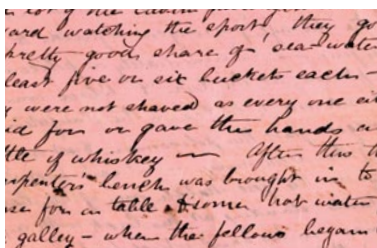 lot of the cabin
ard watching the sport they go
pretty good share of sea-water
least five or six buckets each -
were not shaved as every one ei
id for or gave the hands a
ttle of whiskey - After this t
rpenter's bench was brought in to
se for a table & some hot water
galley - when the fellows began